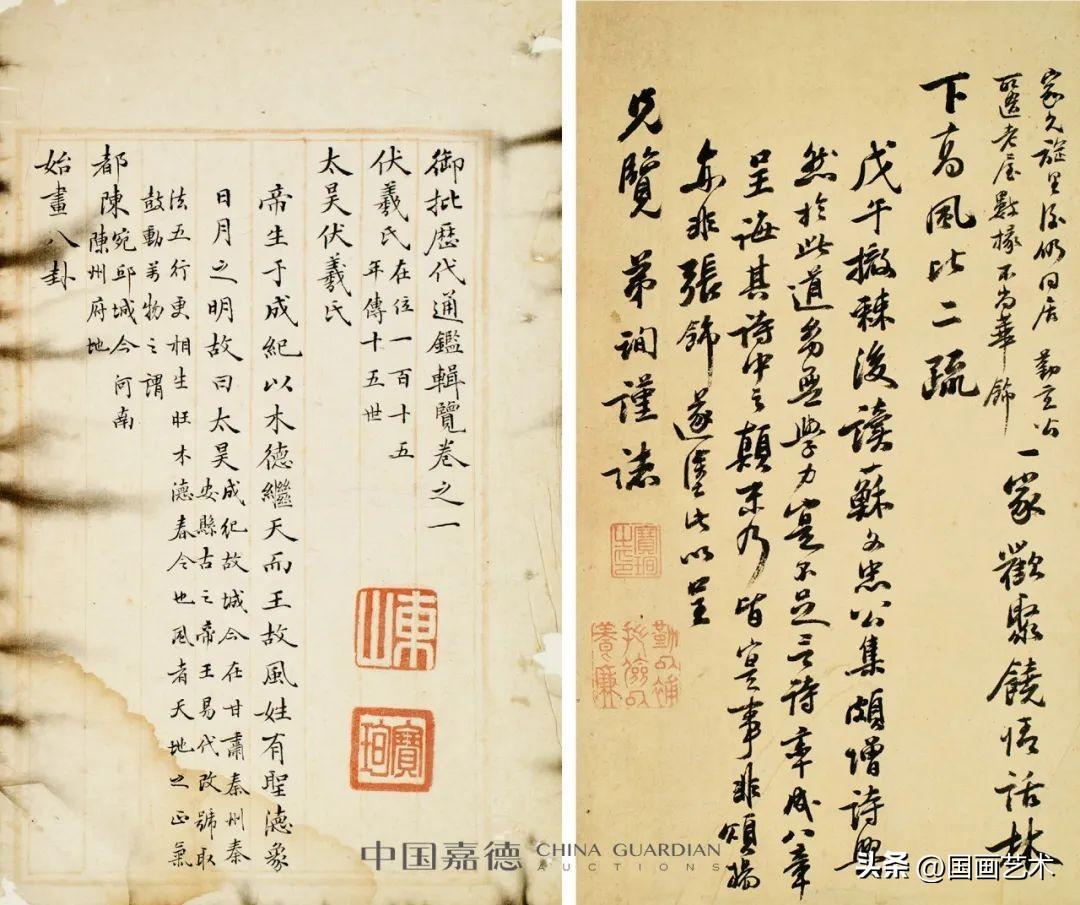 御批歷代通鑑輯覽卷之一
伏羲氏 在位一百十五
年傳十五世
太昊伏羲氏
帝生于成紀以木德繼天而王故風姓有聖德象
日月之明故曰太昊 成紀故城今在甘肅秦州秦
安縣古之帝王易代改號取
法五行更相生旺木德春令也風者天地之正氣
鼓動萬物之謂
都陳 宛邱城今河南
陳州府地
始畫八卦
東山
寶珣
家兄旋里後仍同居 勤立公
所遺老屋數椽不尚華飾
一家歡聚饒情話林
下高風比二疏
戊午撤棘後讀蘇文忠公集頗增詩興
然於此道無學力寔不足言詩率成八章
呈誨其詩中之顛末乃皆寔事非頌揚
亦非張飾遂以呈
兄覽 弟珣謹誌
寶珣之印
勤以補拙儉以養廉
中国嘉德 CHINA GUARDIAN
AUCTIONS
头条 @国画艺术